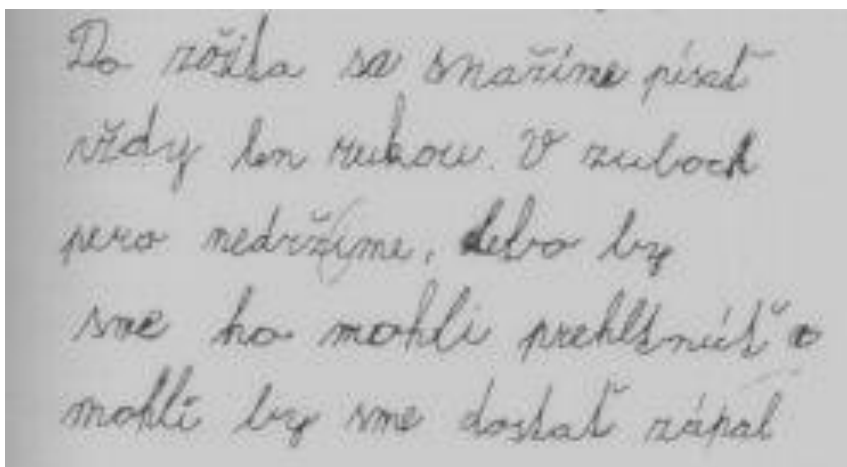 Do zošita sa snažíme písať
vždy len rukou. V zuboch
pero nedržíme, lebo by
sme ho mohli prehltnúť a
mohli by sme dostať zápal